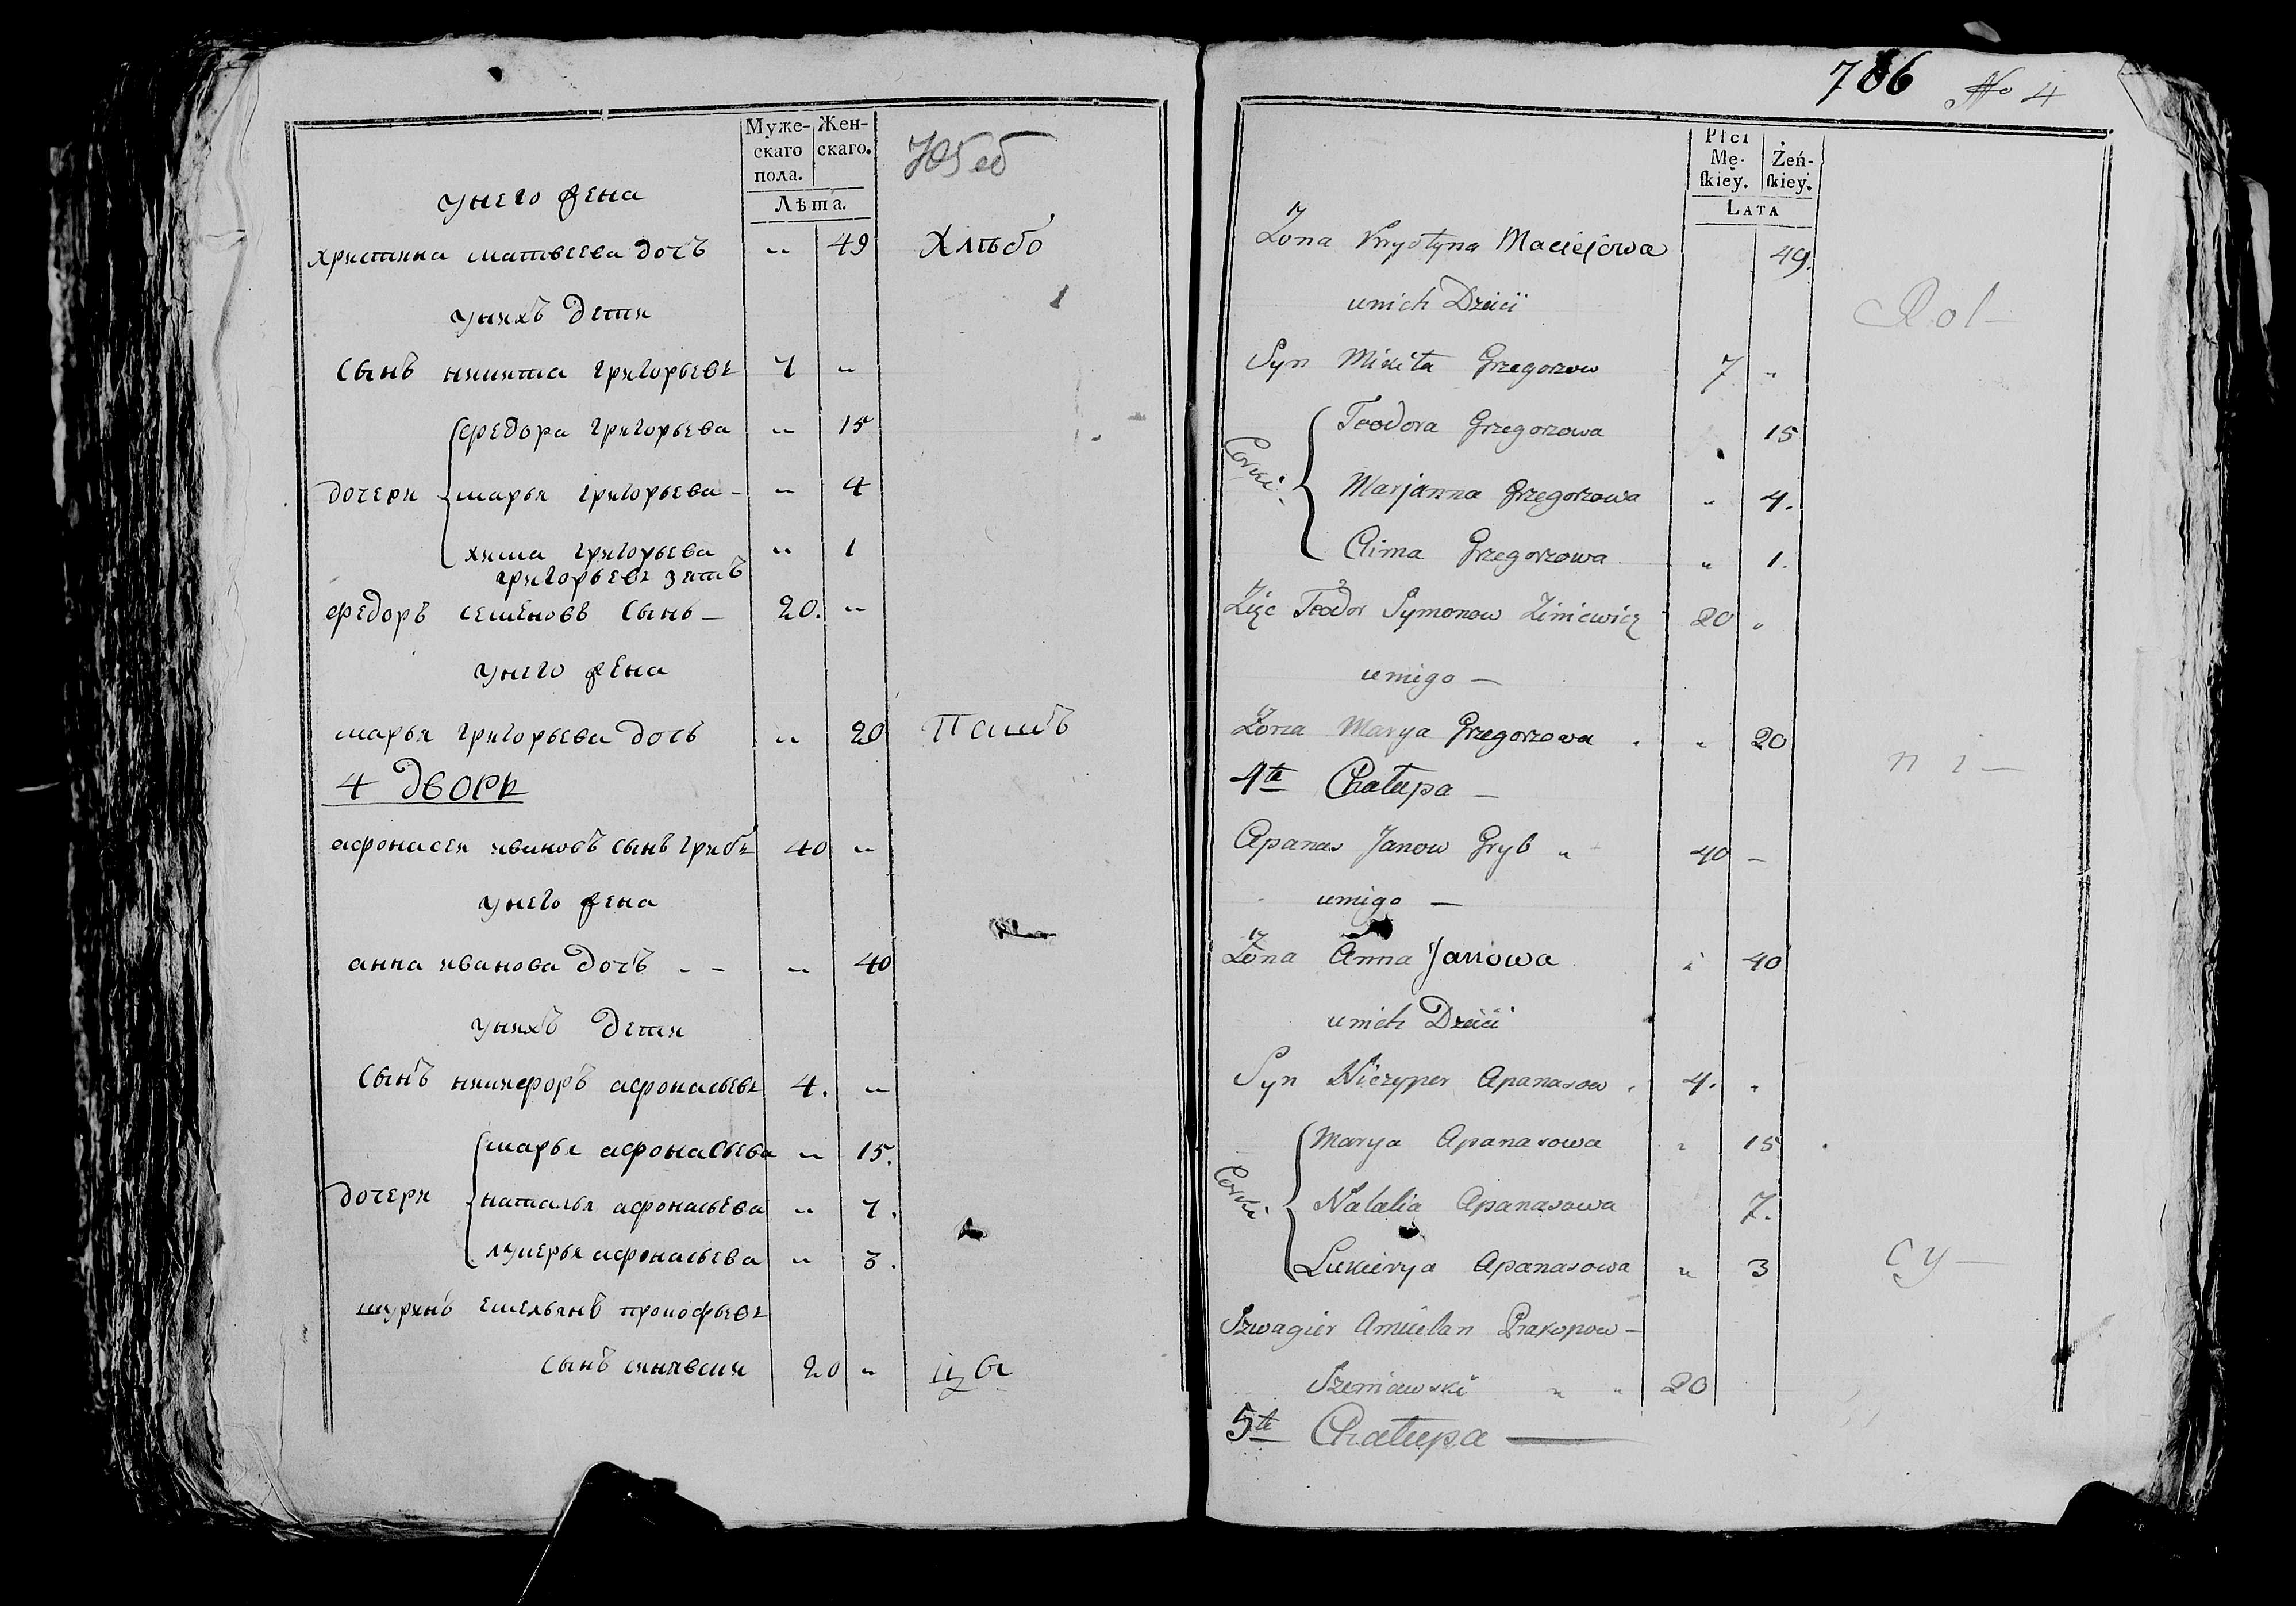 Муже-
скаго
пола.
Жен-
скаго.
Лѣта.
унего жена
христина матвеева дочъ „ 49 Хлѣбо
унихъ дети
сынъ никита григорьевъ 7 „
федора григорьева „ 15
дочери марья григорьева „ 4
хима григорьева „ 1
григорьевъ зятъ
федоръ семёновъ сынъ 20. „
унего жена
марья григорьева дочь „ 20 Пашъ
4 дворъ
афонасей ивановъ сынъ грибъ 40 „
унего жена
анна иванова дочъ - - „ 40
унихъ дети
сынъ никифоръ афонасьевъ 4. „
марья афонасьева „ 15.
дочери наталья афонасьева „ 7.
лукерья афонасьева „ 3.
шуринъ емельянъ прокофьевъ
сынъ синявски 20 „ цы
786 No 4
Płci
Mę-
skiey.
Żeń-
skiey.
Lata
Żona Krystyna Maciejowa 49.
unich Dzieci
Rol-
Syn Mikita Grzegorzow 7 „
Teodora Grzegorzowa 15
Corki Marjanna Grzegorzowa „ 4.
Chima Grzegorzowa „ 1.
Zięc Teodor Symonow Ziniewicz 20 „
uniego —
Żona Marya Grzegorzowa „ 20
ni-
4ta Chałupa —
Apanas Janow Gryb „ 40 -
uniego —
Żona Anna Janowa „ 40
unich Dzieci
Syn Niczyper Apanasow 4. „
Marya Apanasowa „ 15
Corki Natalia Apanasowa 7.
Lukierya Apanasowa „ 3
cy-
Szwagier Amielan Prakopow -
Szeniawski „ „ 20
5ta Chałupa —